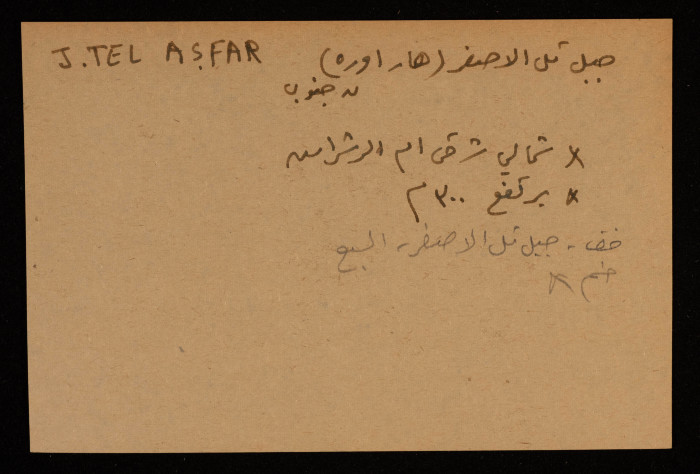 J. TEL AṢFAR
جبل تل الاصفر (هار اوره)
ن جنوب
x شمالي شرقي ام الرشراش
x يرتفع ٣٠٠ م
خف - جبل تل الاصفر، السبع
ضم x